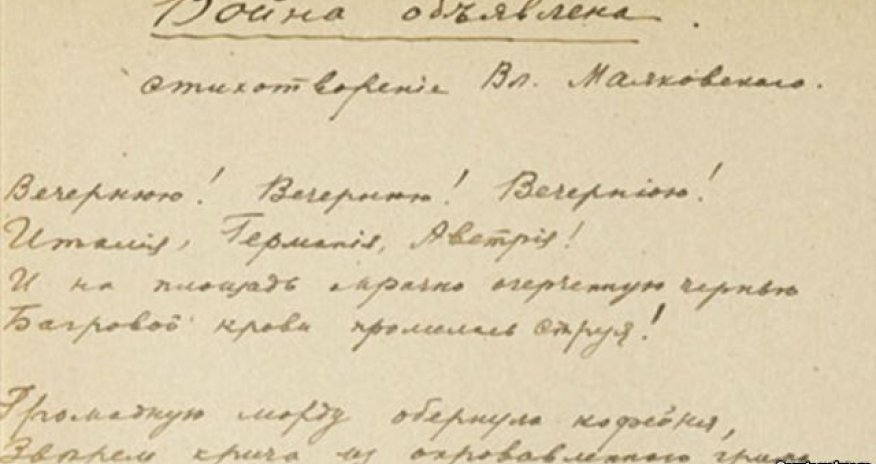 Война объявлена.
стихотворенiе Вл. Маяковскаго.
Вечернюю! Вечернюю! Вечернюю!
Италiя, Германiя, Австрiя!
И на площадь мрачно очерченную чернью
Багровой крови пролилась струя!
Громадную морду обернула кофейня,
Звѣрем крича из окровавленного грима